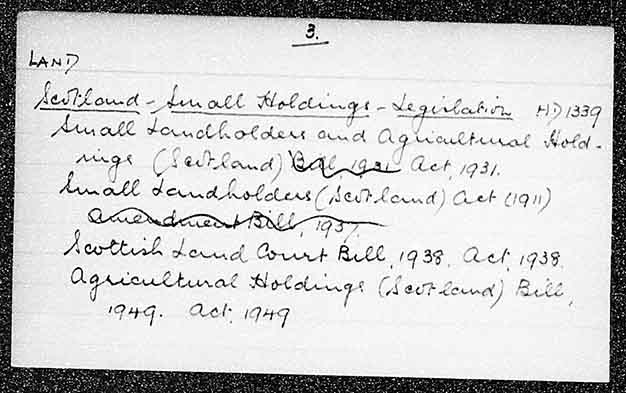 3.
LAND
Scotland - Small Holdings - Legislation HD 1339
Small Landholders and Agricultural Hold-
ings (Scotland) Bill, 1931 Act, 1931.
Small Landholders (Scotland) Act (1911)
Amendment Bill, 1937.
Scottish Land Court Bill, 1938. Act, 1938.
Agricultural Holdings (Scotland) Bill,
1949. Act, 1949